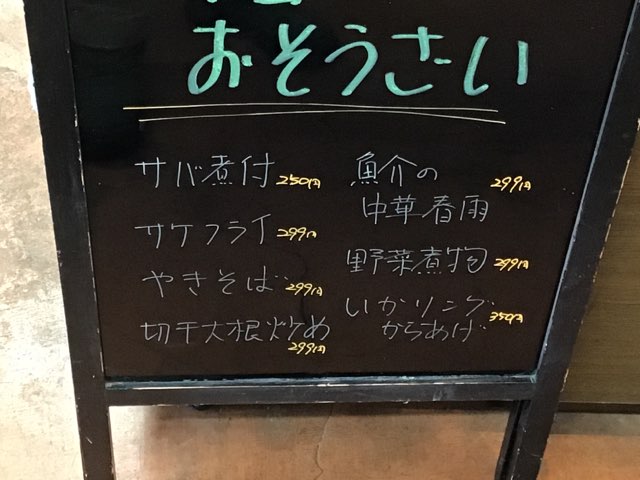 おそうさい
サバ煮付 250円
サケフライ 299円
やきそば 299円
切干大根炒め
299円
魚介の 299円
中華春雨
野菜煮物 299円
いかリング 350円
からあげ